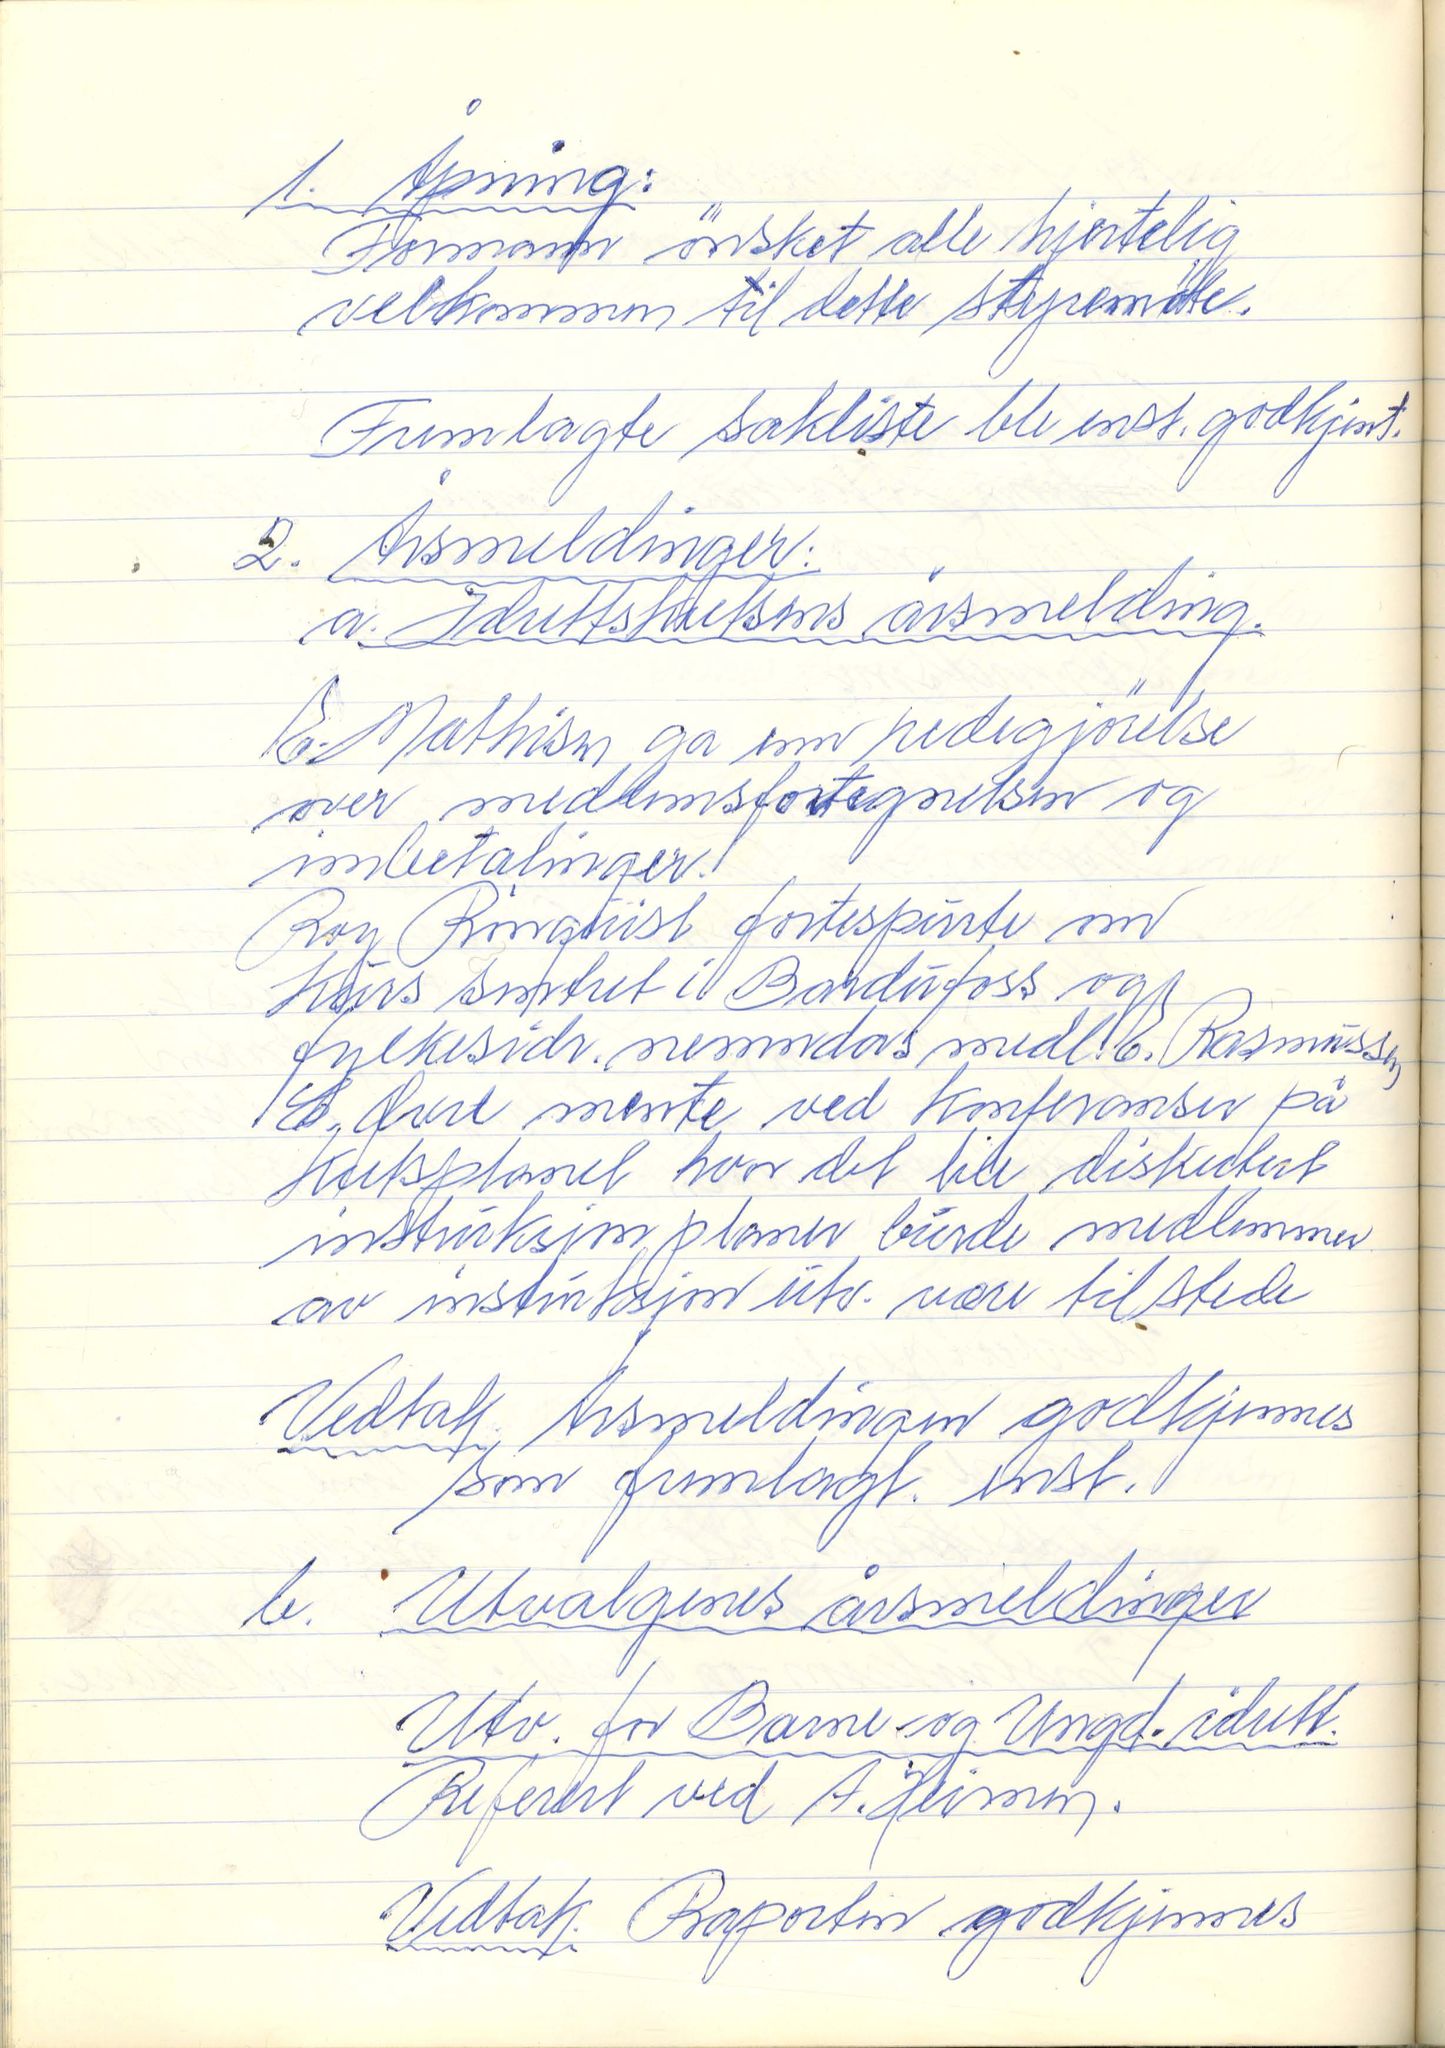 1. Åpning:
Formann önsket alle hjertelig
velkommen til dette styremöte.
Fremlagte sakliste ble enst. godkjent.
2. Årsmeldinger:
a. Idrettskretsens årsmelding.
E. Mathisen ga enn redegjörelse
over medlemsfortegnelsen og
innbetalinger.
Roy Ringquist fortespurte om
kurs sentret i Bardufoss og
fylkesidr. nemndas medl. E. Rasmussen
E. mente ved konferanser på
kretsplanet hvor det ble diskutert
instruksjon planer burde medlemmer
av instruksjon utv. være til stede
Vedtak Årsmeldingen godkjennes
som fremlagt. enst.
b. Utvalgenes årsmeldinger
Utv. for Barne og Ungd. idrett.
Referert ved A. Heimen.
Vedtak. Raporten godkjennes